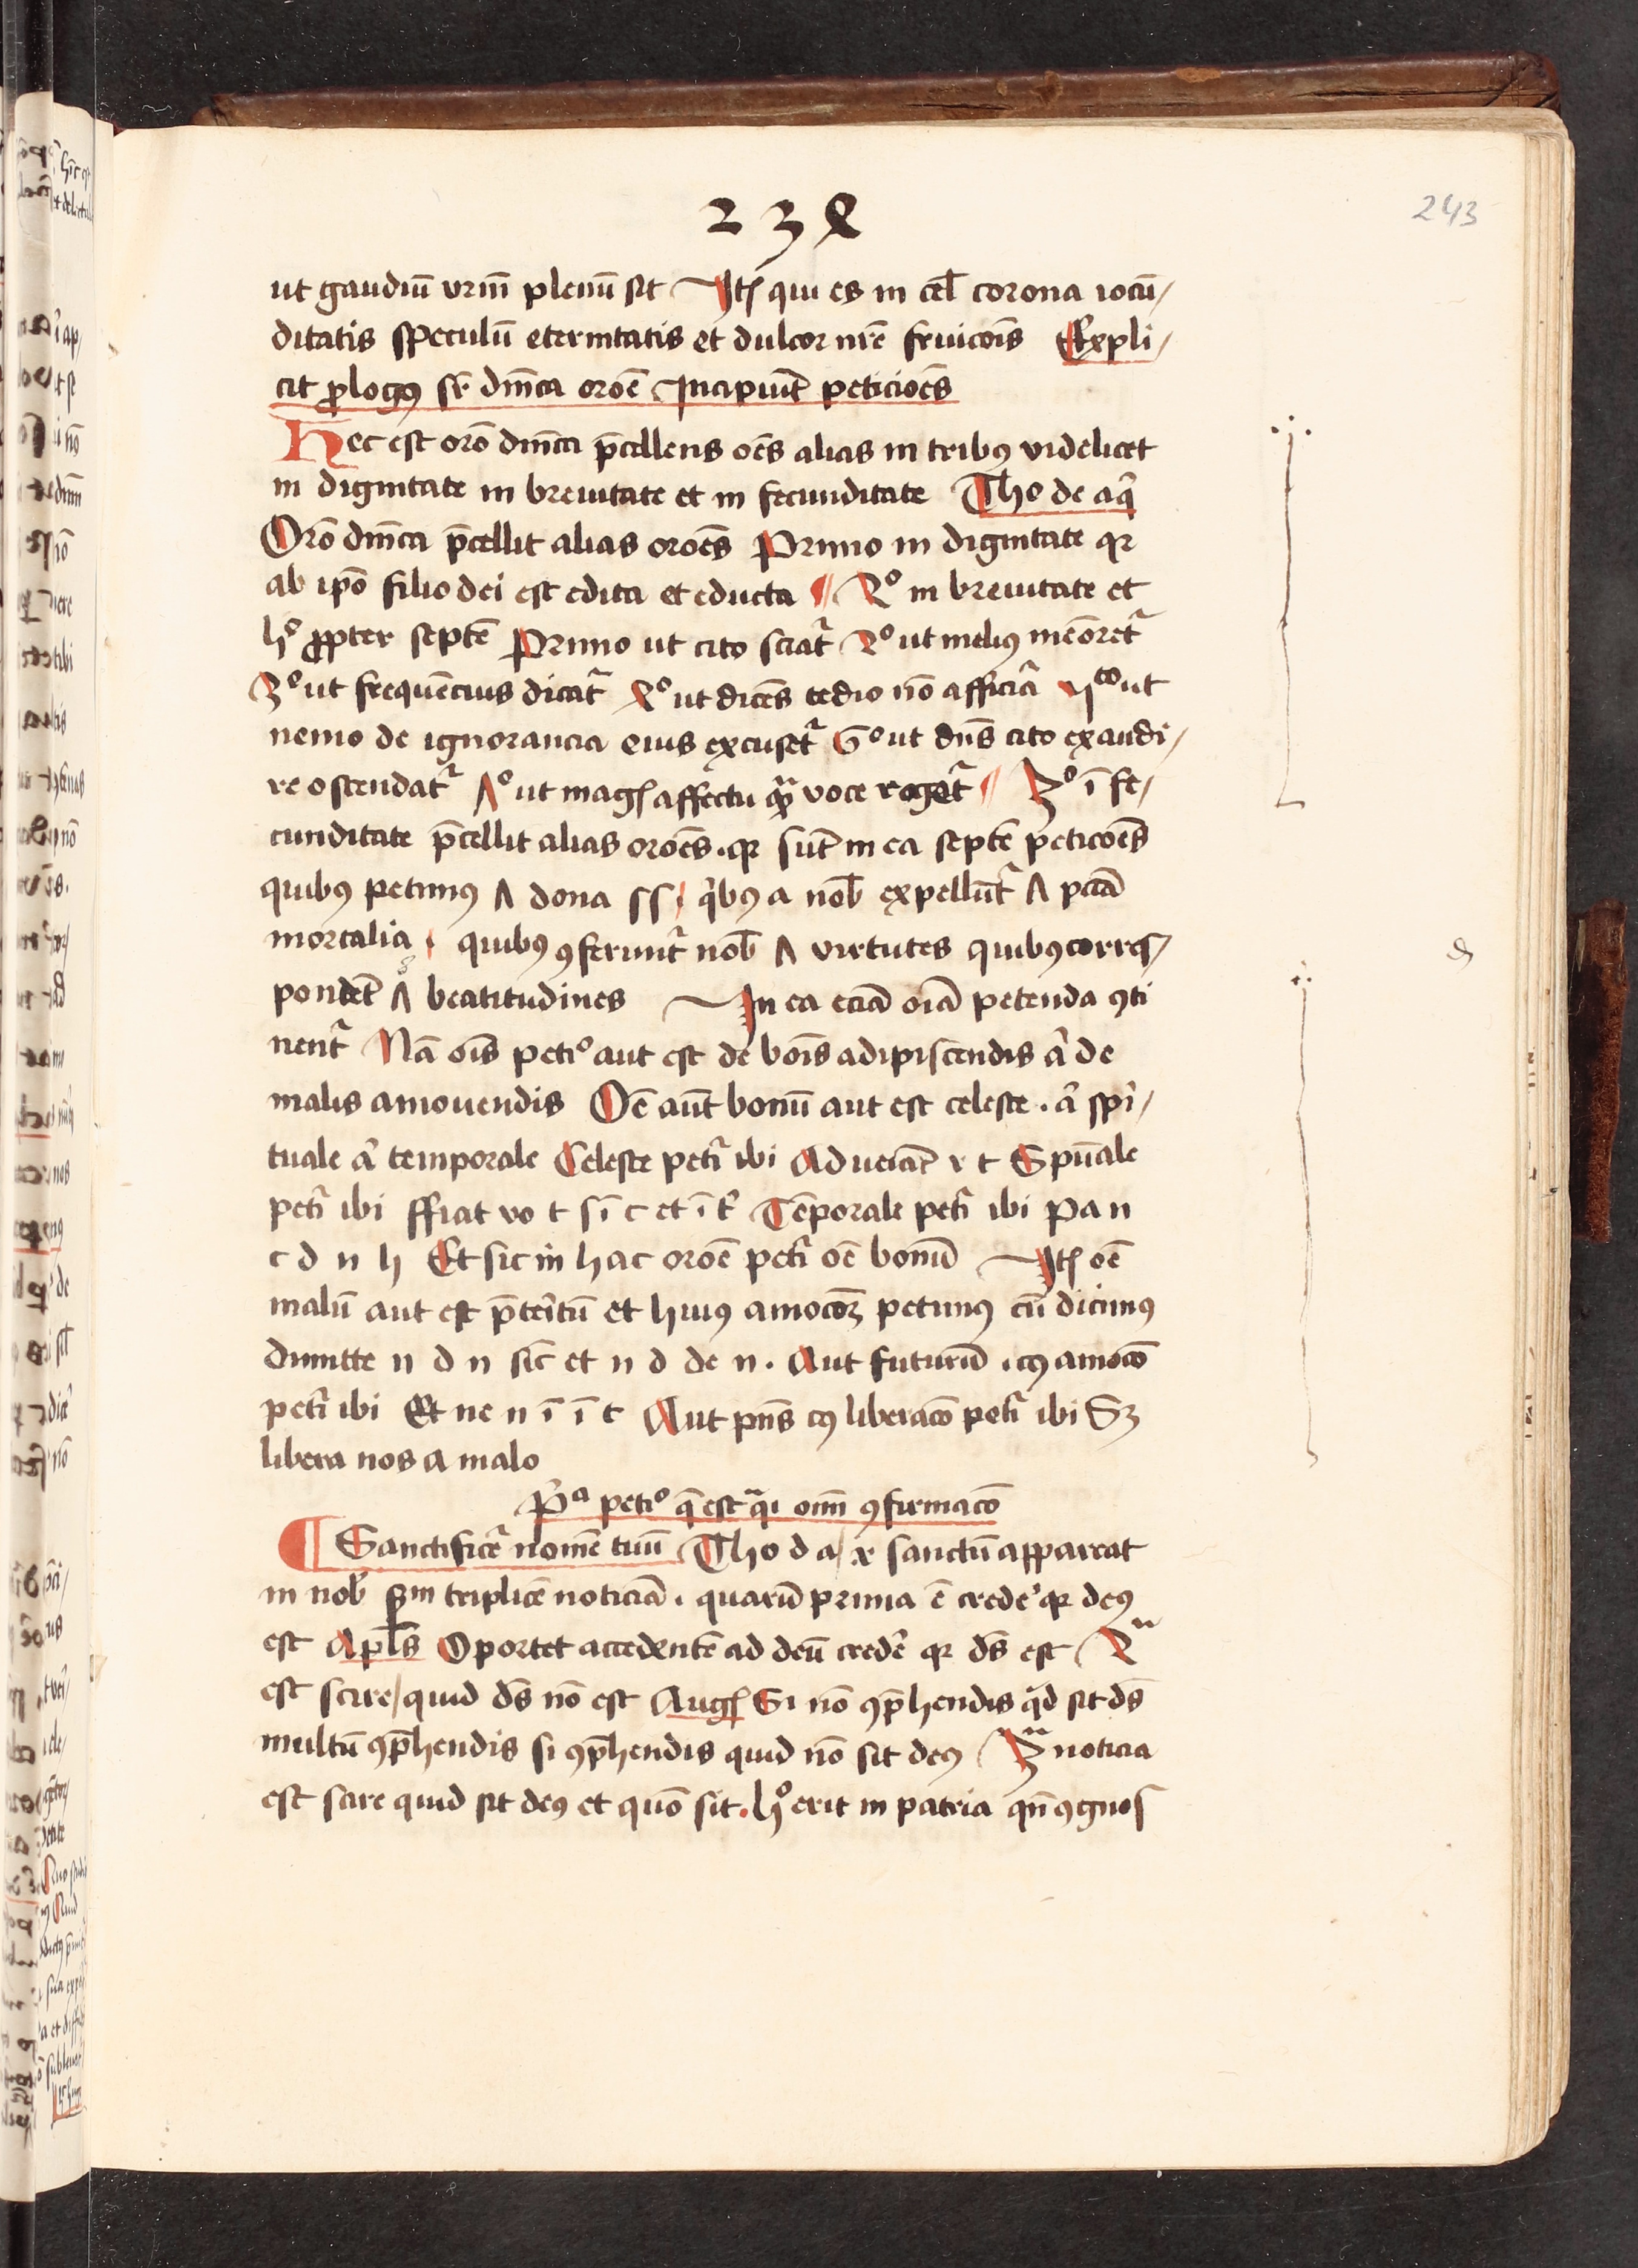 234
243
ut gaudiū vr̄m plenū sit Itē qui es in cel̄ corona iocū/
ditatis speculū eternitatis et dulcor nr̄e fruicōis Expli/
cit ꝓlogꝰ sr̄ dn̄ica orōe Incipiūt peticiōes
Hec est orō dn̄ica p̄cellens oēs alias in tribꝰ videlicet
in dignitate in breuitate et in fecunditate Tho de aq̄
Orō dn̄ica p̄cellit alias orōes Primo in dignitate qꝛ
ab ip̄o filio dei est edita et educta ¶ 2º in breuitate et
hº ꝓpter septē Primo ut cito sciat᷑ 2º ut meliꝰ memōret᷑
3º ut frequēcius dicat᷑ 4º ut dicēs tedio nō afficiat᷑ 5to ut
nemo de ignorancia eius excuset᷑ 6º ut dn̄s cito exaudi/
re ostendat᷑ 7º ut magꝭ affectu qͣꝫ voce roget᷑ ¶ 3º ī fe/
cunditate p̄cellit alias orōes . qꝛ sūt in ea septē peticōes
quibꝰ petimꝰ 7 dona ss / qͥbꝰ a nob̄ expellūt᷑ 7 pctā
mortalia / quibꝰ ꝯferunt᷑ nob̄ 7 virtutes quibꝰ corres/
pondēt 7 beatitudines In ea eciā oīa petenda ꝯti
nent᷑ Nā oīs petiº aut est de bonīs adipiscendis aͭ de
malis amouendis Oē aūt bonū aut est celeste . aͭ spī/
tuale aͭ temporale Celeste petit᷑ ibi Adueniat r t Spūale
petit᷑ ibi ffiat vo t sī c et ī t᷑ Tēporale petit᷑ ibi Pa n
c d n h Et sic in hac orōe petit᷑ oē bonū Itē oē
malū aut est p̄teritū et huiꝰ amocōꝫ petimꝰ cū dicimꝰ
dimitte n d n sic̄ et n d de n . Aut futurū . cꝰ amocō
petit᷑ ibi Et ne n ī ī t Aut pn̄s cꝰ liberacō petit᷑ ibi Sꝫ
libera nos a malo
Pͣ petiº q̄ est qͣi oīm ꝯfirmacō
¶ Sanctificet᷑ nomē tuū Tho d a / r sanctū appareat
in nob̄ scdm triplicē noticiā . quarū prima ē credeͬ qꝛ deꝰ
est Apl̄s Oportet accedentē ad deū credeͬ qꝛ ds̄ est 2ª
est scire / quid ds̄ nō est Augꝰ Si nō ꝯp̄hendis qͥd sit ds̄
multū ꝯp̄hendis si ꝯp̄hendis quid nō sit deꝰ 3ª noticia
est scire quid sit deꝰ et quō sit . hº erit in patria qn̄ ꝯgnos